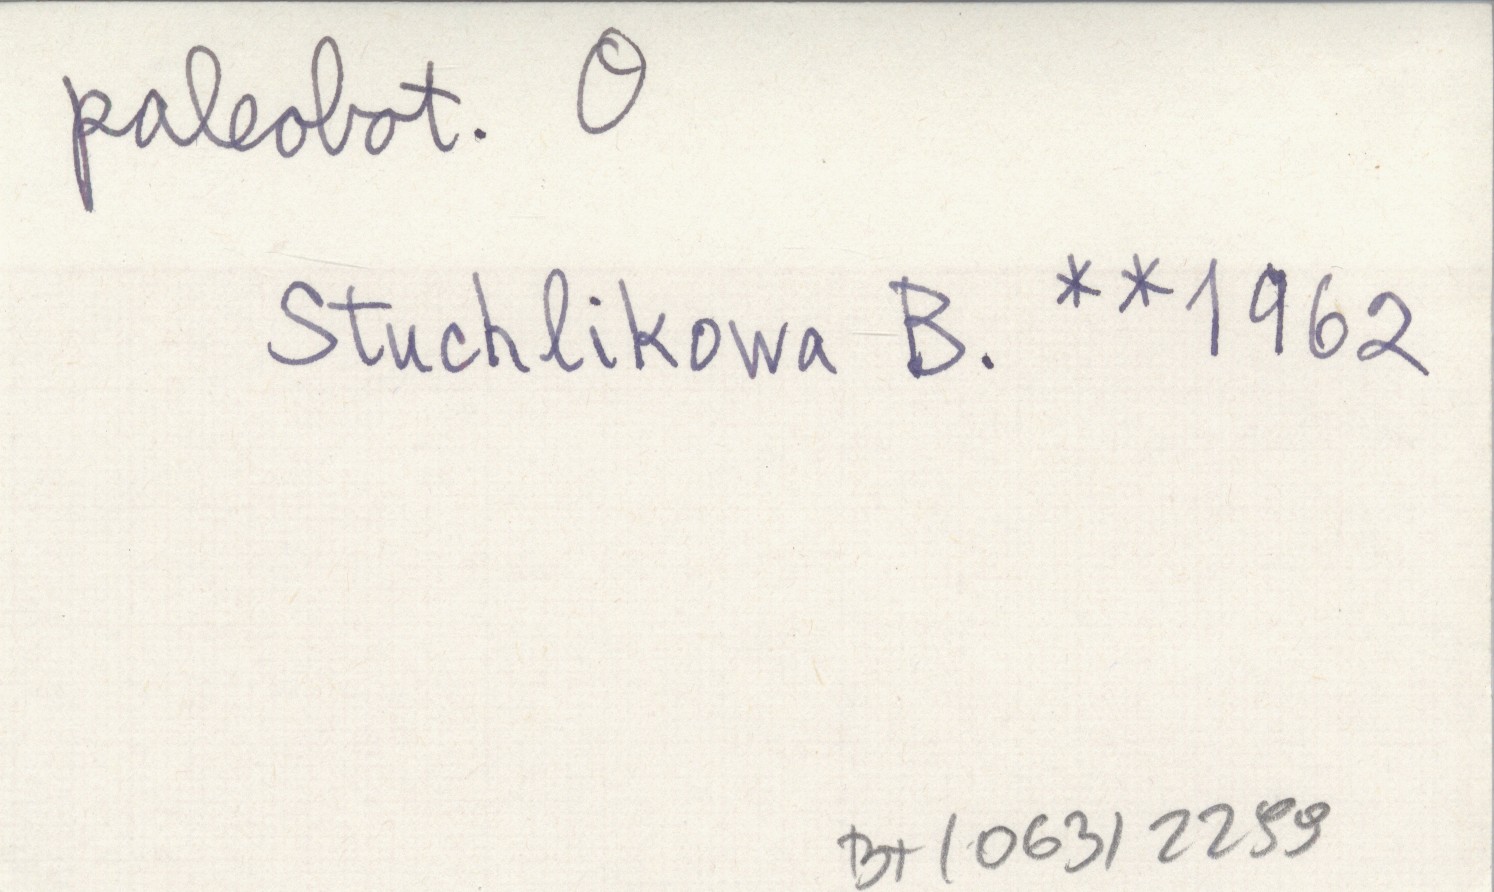 paleobot. O
Stuchlikowa B. **1962
Bt / 063 / 2299